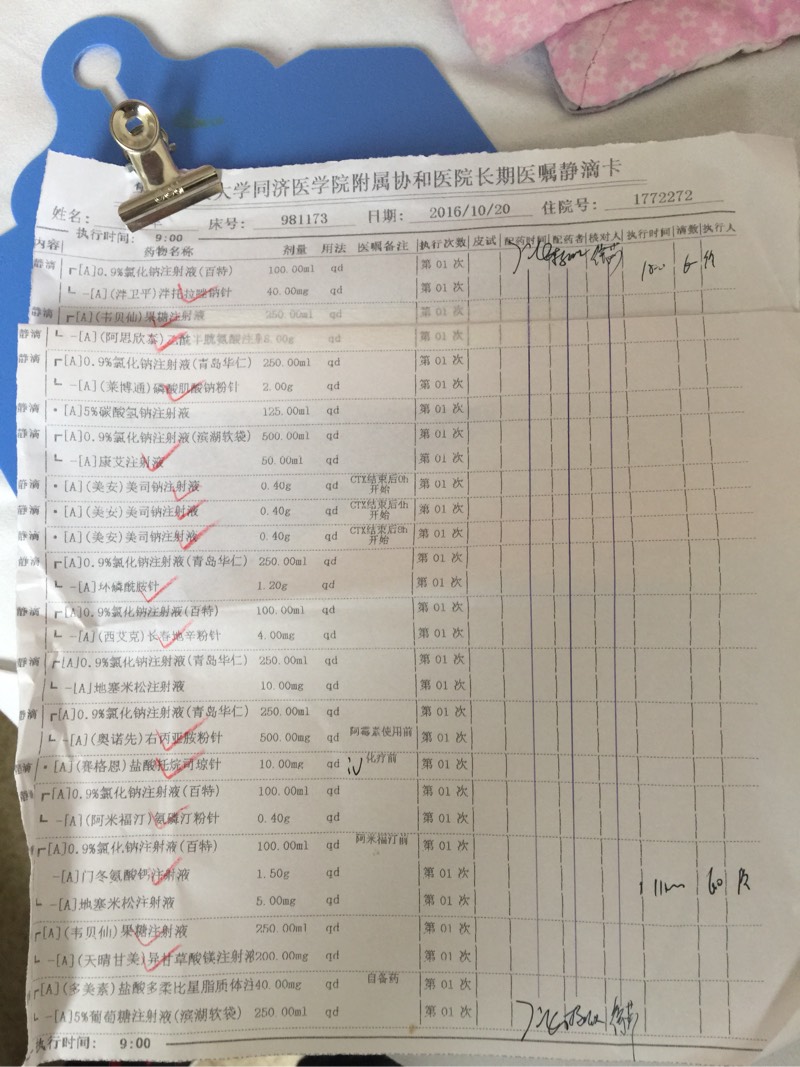 大学同济医学院附属协和医院长期医嘱静滴卡
姓名： 床号： 981173 日期： 2016/10/20 住院号： 1772272
执行时间： 9:00
内容 药物名称 剂量 用法 医嘱备注 执行次数 皮试 配药时间 配药者 核对人 执行时间 滴数 执行人
静滴 ┏[A]0.9%氯化钠注射液(百特) 100.00ml qd 第 01 次
┗ -[A](泮卫平)泮托拉唑钠针 40.00mg qd 第 01 次
静滴 ┏[A](韦贝仙)果糖注射液 250.00ml qd 第 01 次
静滴 ┗ -[A](阿思欣泰) qd 第 01 次
静滴 ┏[A]0.9%氯化钠注射液(青岛华仁) 250.00ml qd 第 01 次
┗ -[A](莱博通)磷酸肌酸钠粉针 2.00g qd 第 01 次
静滴 •[A]5%碳酸氢钠注射液 125.00ml qd 第 01 次
静滴 ┏[A]0.9%氯化钠注射液(滨湖软袋) 500.00ml qd 第 01 次
┗ -[A]康艾注射液 50.00ml qd 第 01 次
静滴 •[A](美安)美司钠注射液 0.40g qd CTX结束后0h开始 第 01 次
静滴 •[A](美安)美司钠注射液 0.40g qd CTX结束后4h开始 第 01 次
静滴 •[A](美安)美司钠注射液 0.40g qd CTX结束后8h开始 第 01 次
静滴 ┏[A]0.9%氯化钠注射液(青岛华仁) 250.00ml qd 第 01 次
┗ -[A]环磷酰胺针 1.20g qd 第 01 次
静滴 ┏[A]0.9%氯化钠注射液(百特) 100.00ml qd 第 01 次
┗ -[A](西艾克)长春地辛粉针 4.00mg qd 第 01 次
静滴 ┏[A]0.9%氯化钠注射液(青岛华仁) 250.00ml qd 第 01 次
┗ -[A]地塞米松注射液 10.00mg qd 第 01 次
静滴 ┏[A]0.9%氯化钠注射液(青岛华仁) 250.00ml qd 第 01 次
┗ -[A](奥诺先)右丙亚胺粉针 500.00mg qd 阿霉素使用前 第 01 次
静滴 •[A](赛格恩)盐酸托烷司琼针 10.00mg qd iv 化疗前 第 01 次
静滴 ┏[A]0.9%氯化钠注射液(百特) 100.00ml qd 第 01 次
┗ -[A](阿米福汀)氨磷汀粉针 0.40g qd 第 01 次
┏[A]0.9%氯化钠注射液(百特) 100.00ml qd 阿米福汀前 第 01 次
-[A]门冬氨酸钙注射液 1.50g qd 第 01 次
┗ -[A]地塞米松注射液 5.00mg qd 第 01 次
┏[A](韦贝仙)果糖注射液 250.00ml qd 第 01 次
┗ -[A](天晴甘美)异甘草酸镁注射液200.00mg qd 第 01 次
┏[A](多美素)盐酸多柔比星脂质体注40.00mg qd 自备药 第 01 次
┗ -[A]5%葡萄糖注射液(滨湖软袋) 250.00ml qd 第 01 次
执行时间： 9:00